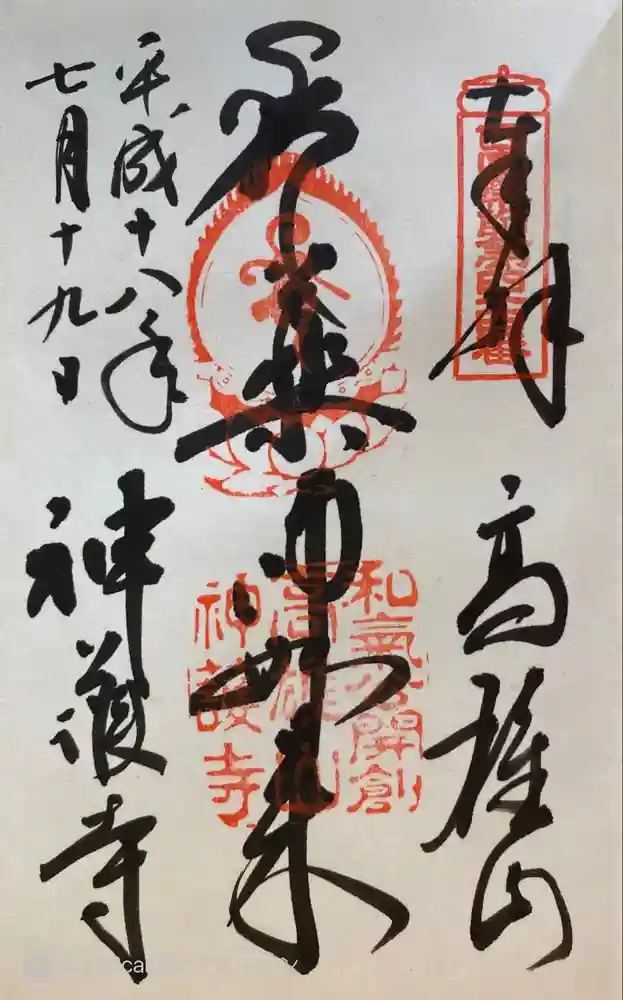 奉拝
高雄山
薬師如来
和氣公開創
高雄山
神護寺
平成十八年
七月十九日
神護寺